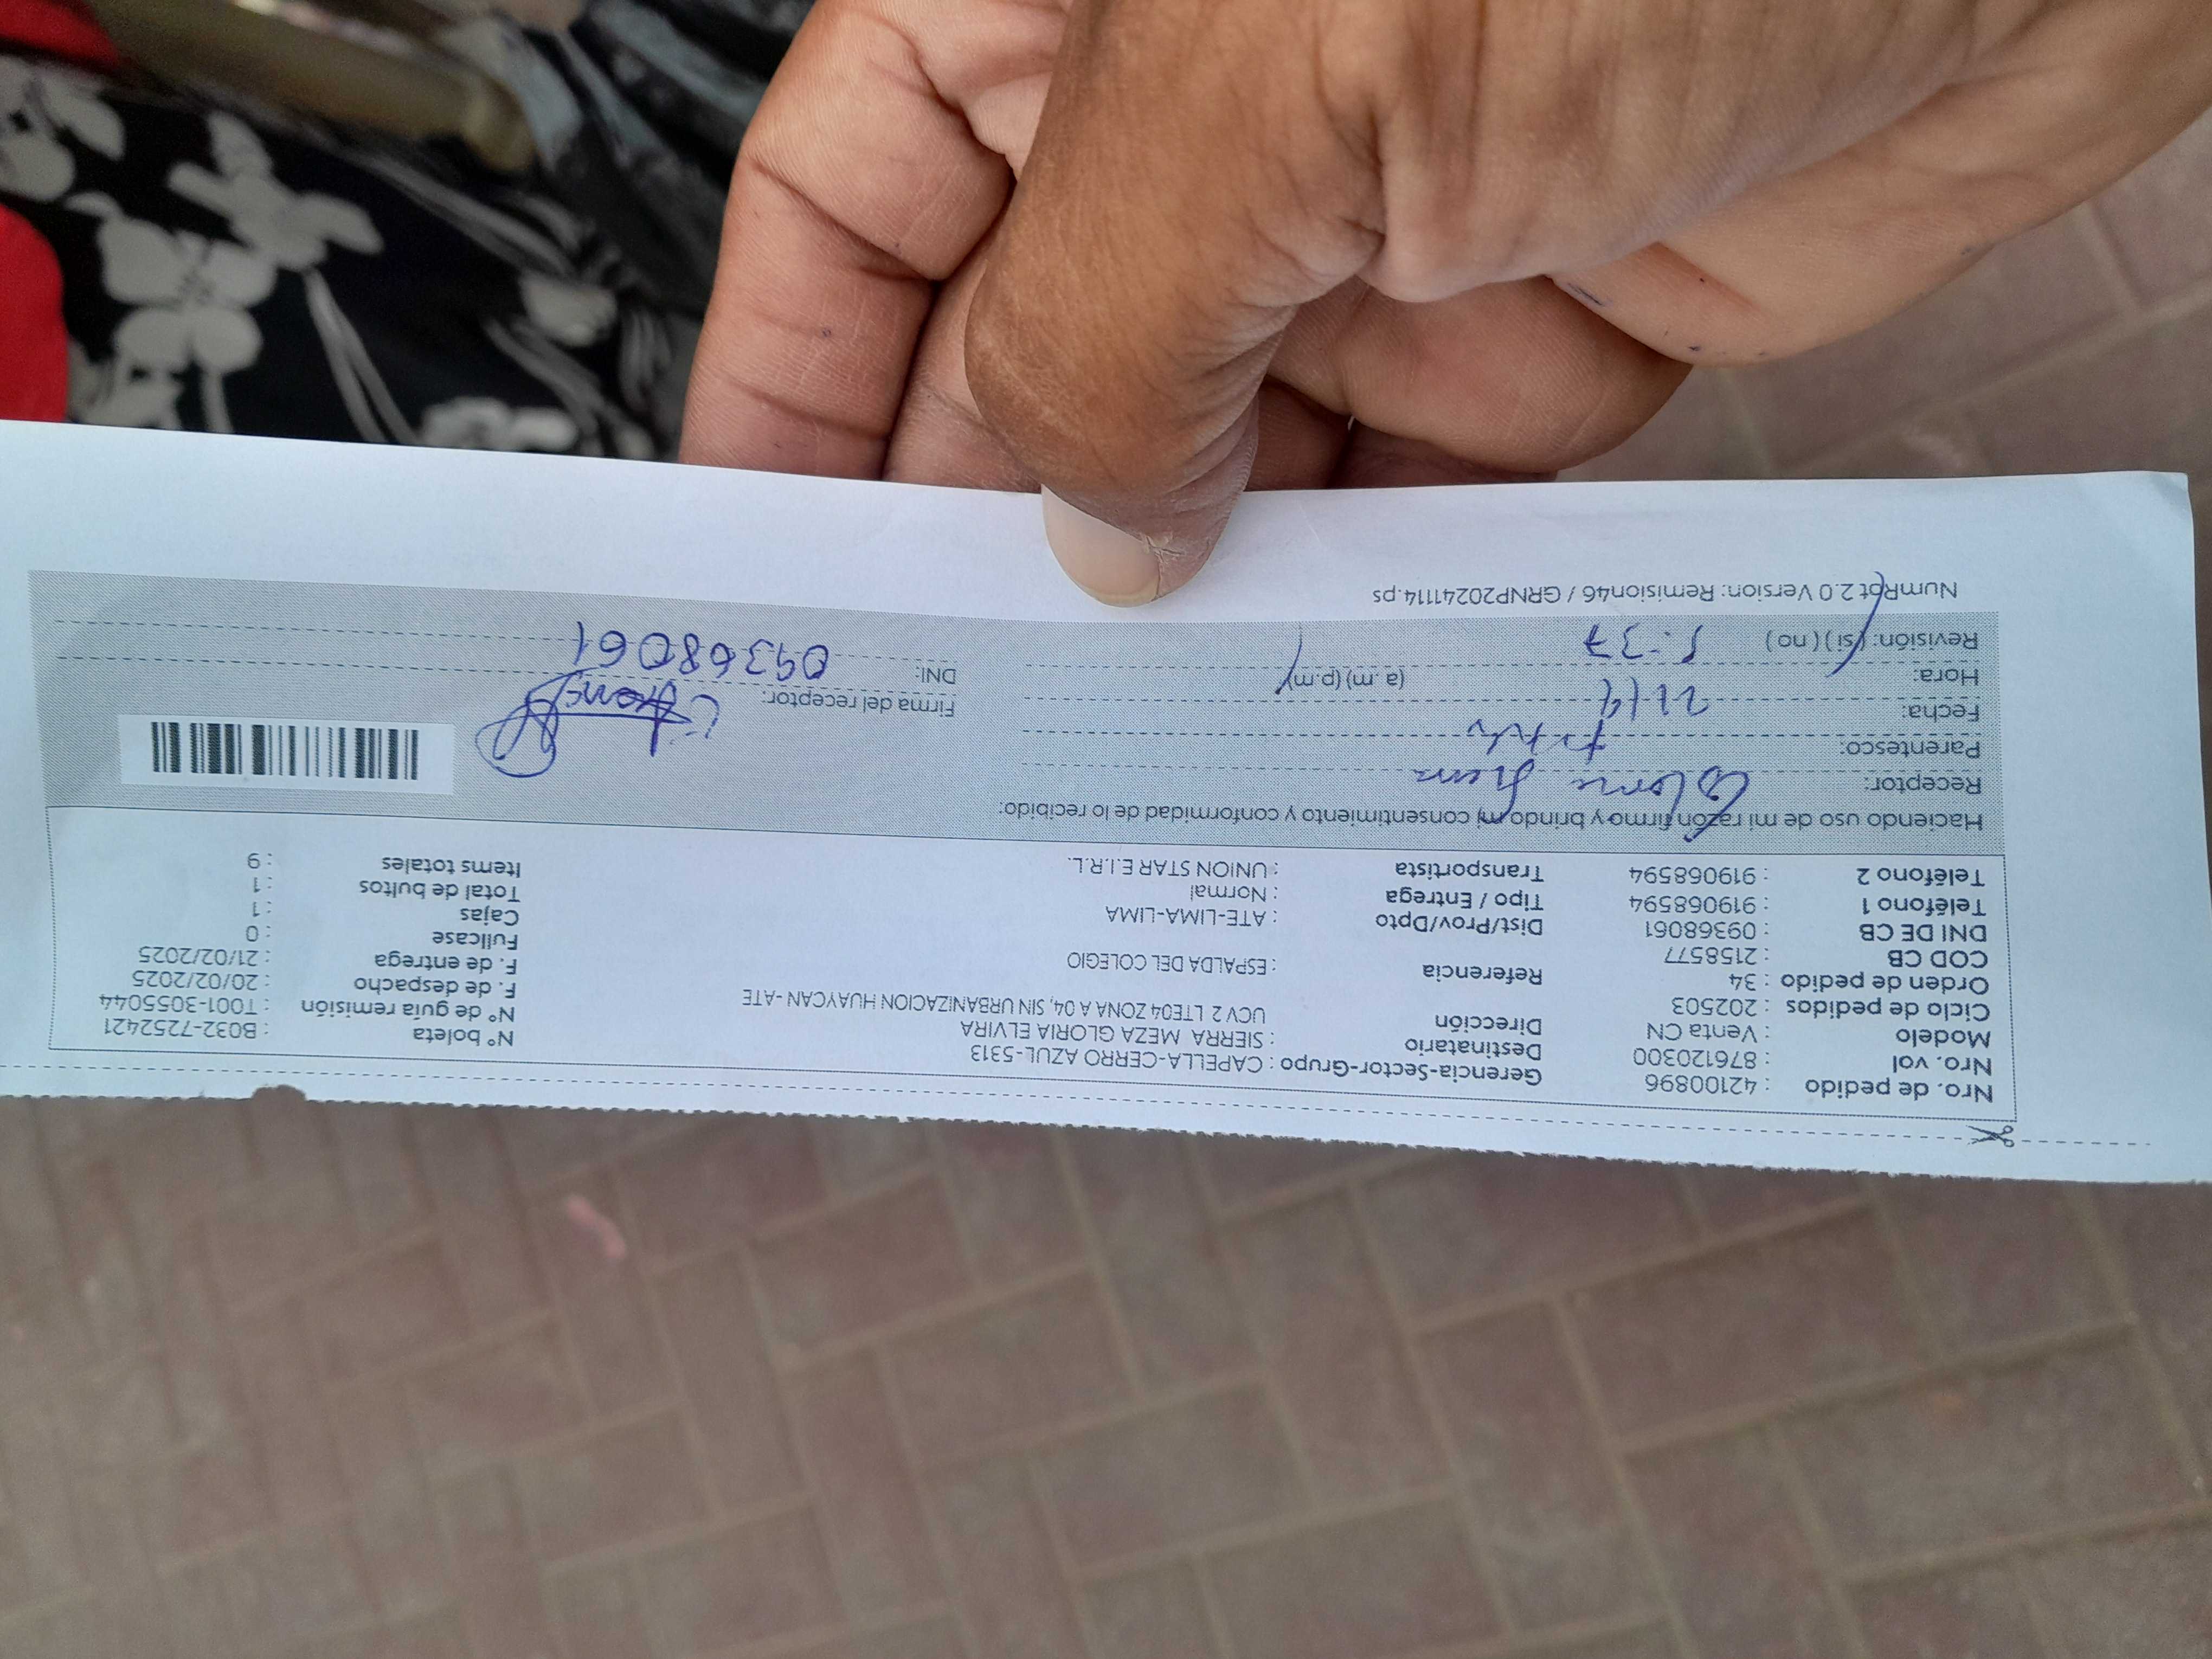 Nro. de pedido : 42100896 Gerencia-Sector-Grupo : CAPELLA-CERRO AZUL-5313 N° boleta : B032-7252421
Nro. vol : 876120300 Destinatario : SIERRA MEZA GLORIA ELVIRA N° de guía remisión : T001-3055044
Modelo : Venta CN Dirección UCV 2 LTE04 ZONA A 04, SIN URBANIZACION HUAYCAN - ATE F. de despacho : 20/02/2025
Ciclo de pedidos : 202503 F. de entrega : 21/02/2025
Orden de pedido : 34 Referencia : ESPALDA DEL COLEGIO Fullcase : 0
COD CB : 2158577 Dist/Prov/Dpto : ATE-LIMA-LIMA Cajas : 1
DNI DE CB : 09368061 Tipo / Entrega : Normal Total de bultos : 1
Teléfono 1 : 919068594 Transportista : UNION STAR E.I.R.L. Items totales : 9
Teléfono 2 : 919068594
Haciendo uso de mi razón firmo y brindo mi consentimiento y conformidad de lo recibido:
Receptor:
Parentesco:
Fecha: Firma del receptor:
Hora: (a.m) (p.m) DNI: 09368061
Revisión: (si) (no)
NumRpt 2.0 Version: Remision46 / GRNP20241114.ps